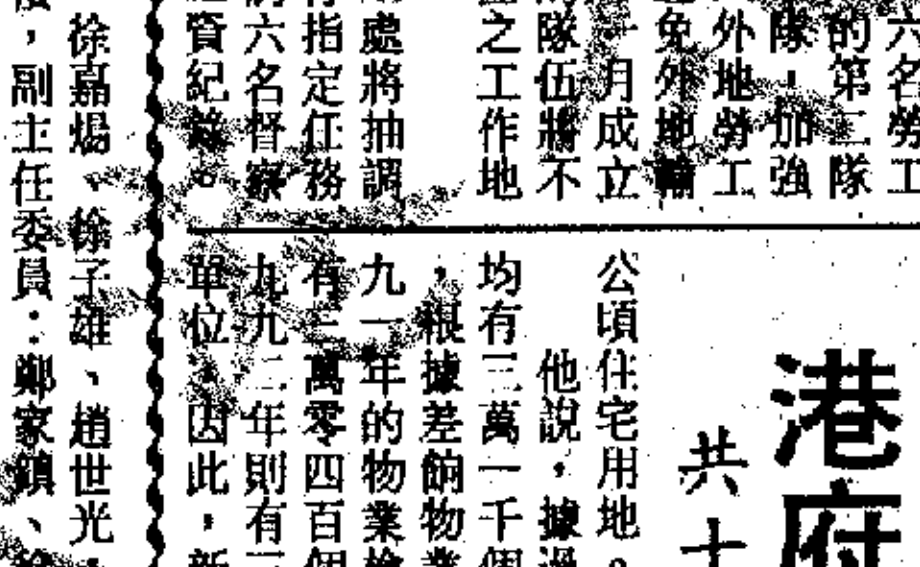 六名勞工
的第三隊
隊，加強
外地勞工
免外地輸
一月成立
隊伍將不
之工作地
處將抽調
指定任務
六名督察
資紀錄。
港府
共十
公頃住宅用地。
他說，據過
均有三萬一千個
，根據差餉物業
九一年的物業檢
有二萬零四百個
九九二年則有三
單位，因此，新
徐嘉煬、徐子雄、趙世光，
，副主任委員：鄭家鎮、徐